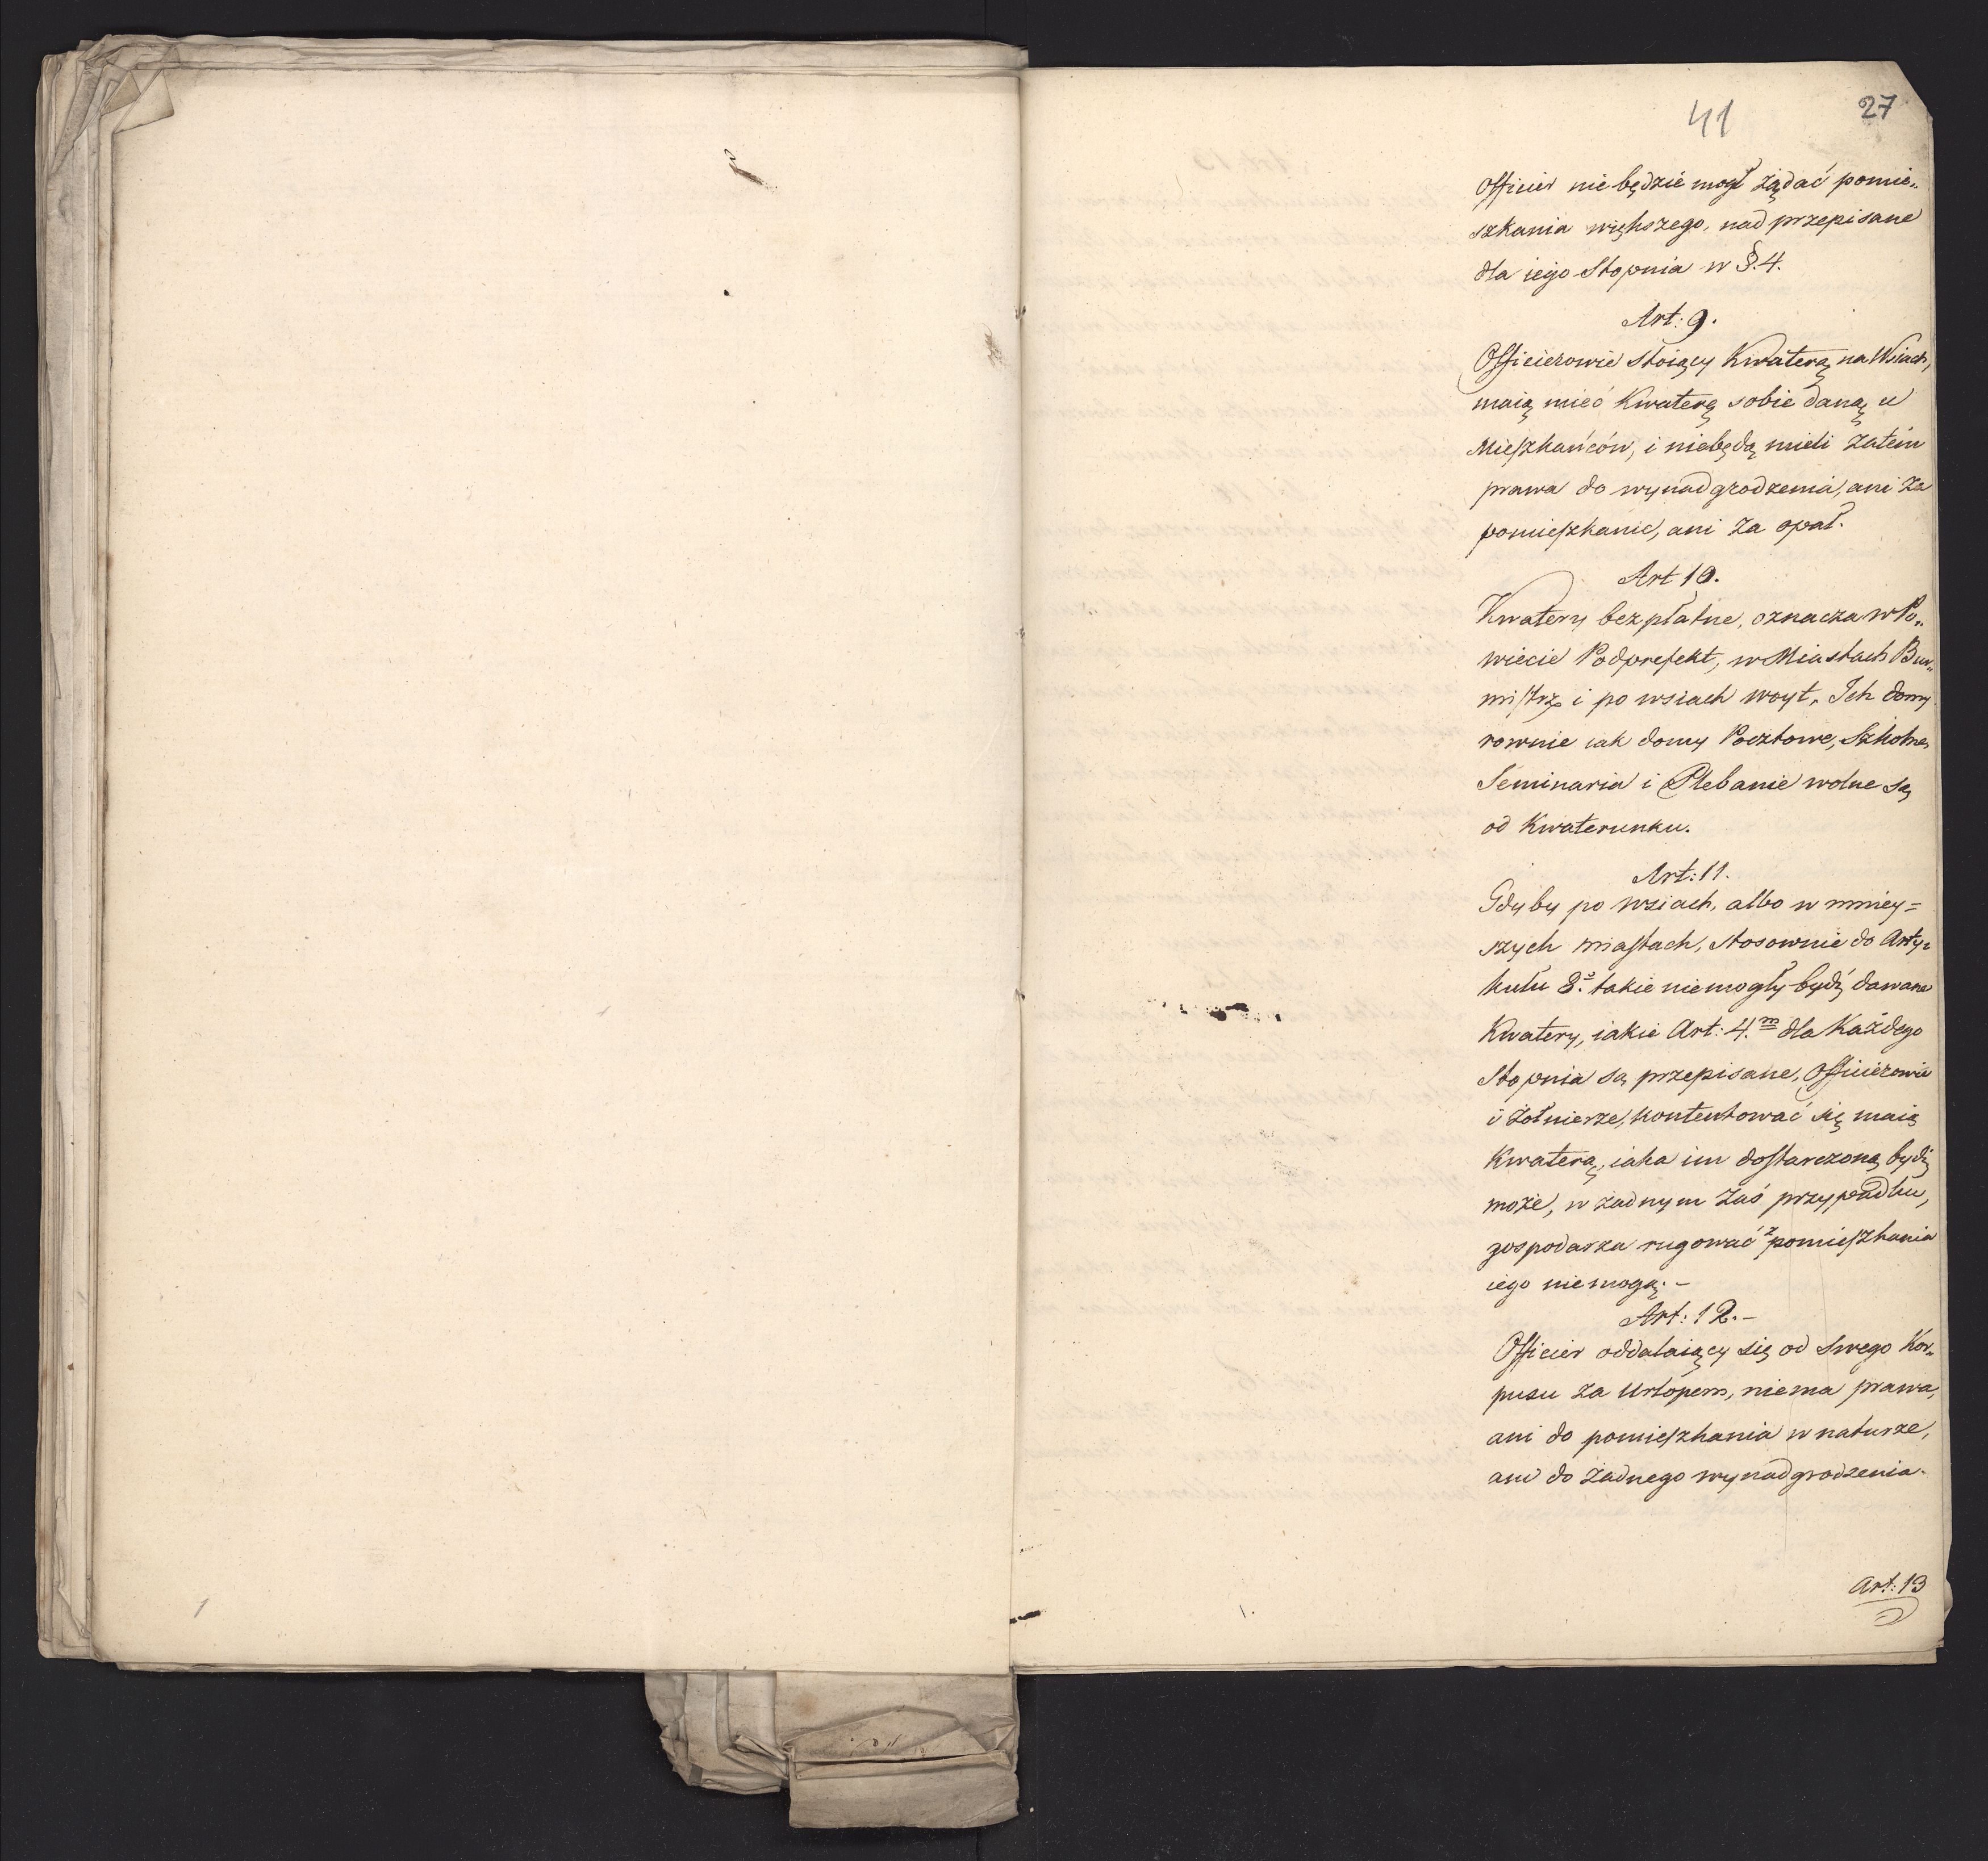 41
27
Officier nie będzie mogł żądać pomie„
szkania większego, nad przepisane
dla iego Stopnia w §. 4.
Art: 9.
Officierowie stoiący Kwaterą na Wsiach,
maią mieć Kwaterę sobie daną u
Mieszkańców, i niebędą mieli zatém
prawa do wynadgrodzenia, ani za
pomieszkanie, ani za opał.
Art 10.
Kwatery bezpłatne, oznacza w Po„
wiecie Podprefekt, w Miastach Bur„
mistrz i po wsiach woyt, Ich domy
rownie iak domy Pocztowe, Szkolne,
Seminaria i Plebanie wolne są
od Kwaterunku.
Art: 11.
Gdyby po wsiach, albo w mniey=
szych miastach, stosownie do Arty=
kułu 8º. takie niemogły bydź dawane
Kwatery, iakie Art: 4.m dla Każdego
Stopnia są przepisane, Officierowie
i żołnierze, kontentować się maią
Kwaterą, iaka im dostarczoną bydź
może, w żadnym zaś przypadku,
gospodarza rugować z pomieszkania
iego nie mogą. –
Art: 12. –
Officier oddalaiący się od swego Kor„
pusu za Urlopem, niema prawa,
ani do pomieszkania w naturze,
ani do żadnego wynadgrodzenia.
Art: 13